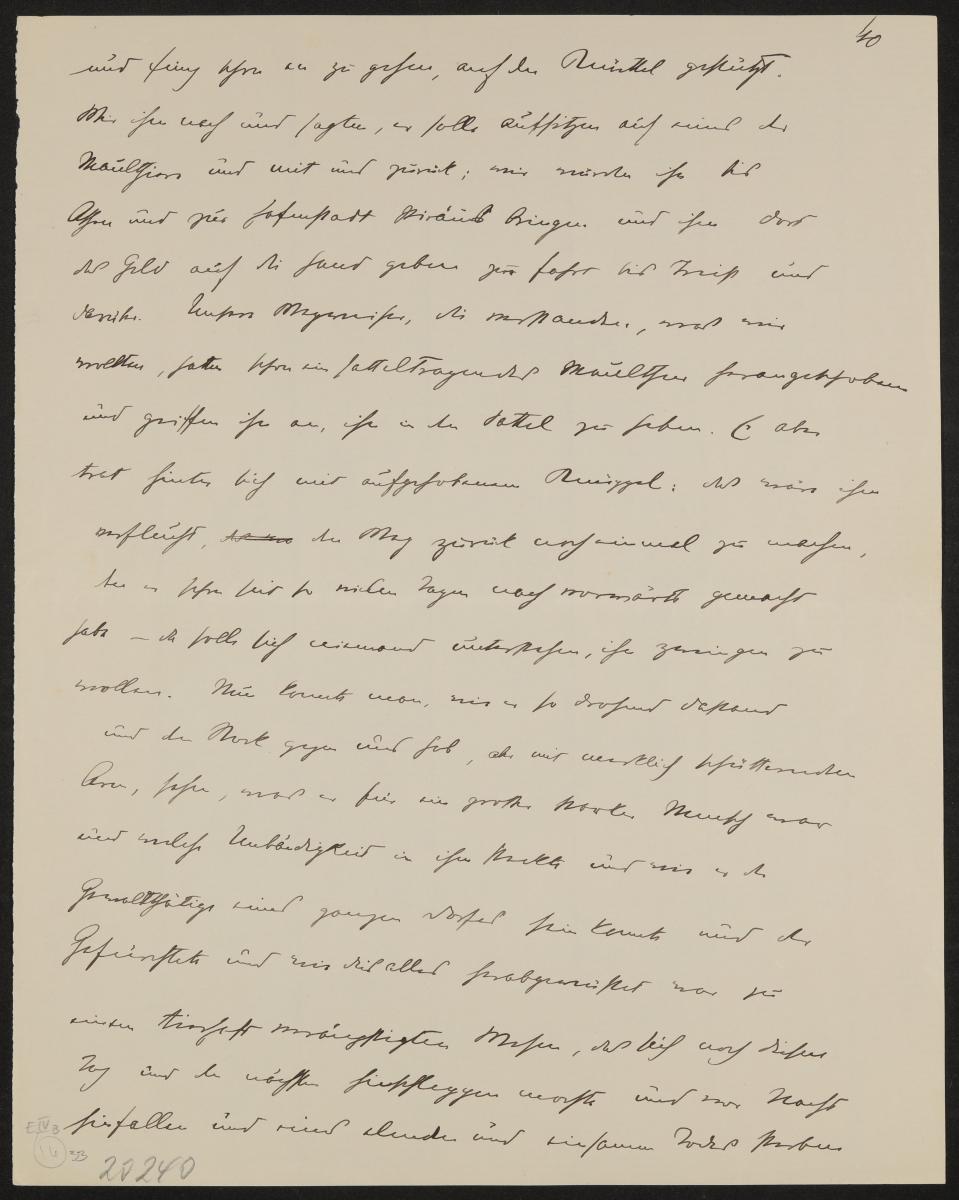 40
und fing schon an zu gehen, auf den Knüttel gestützt.
Wir ihm nach und sagten, er solle aufsitzen auf eines der
Maultiere und mit uns zurück; wir würden ihn bis
Athen und zur Hafenstadt Piräus bringen und ihm dort
das Geld auf die Hand geben zur Fahrt bis Triest und
darüber. Unsere Wegweiser, die verstanden, was wir
wollten, hatten schon ein satteltragendes Maultier herangeschoben
und griffen ihn an, ihn in den Sattel zu heben. Er aber
trat hinter sich mit aufgehobenem Knüppel: das wäre ihm
verflucht, den Weg zurück noch einmal zu machen,
den er schon seit so vielen Tagen nach vorwärts gemacht
habe – da solle sich niemand unterstehen, ihn zwingen zu
wollen. Nun konnte man, wie er so drohend dastand
und den Stock gegen uns hob, aber mit merklich schütterndem
Arm, sehen, was er für ein großer starker Mensch war
und welche Unbändigkeit in ihm steckte und wie er der
Gewaltthätige eines ganzen Dorfes sein konnte und der
Gefürchtete und wie dies alles herabgewüstet war zu
einem tierhaft verängstigten Wesen, das sich noch diesen
Tag und den nächsten hinschleppen mochte und vor Nacht
hinfallen und eines elenden und einsamen Todes sterben
E IV B
16
33
20240